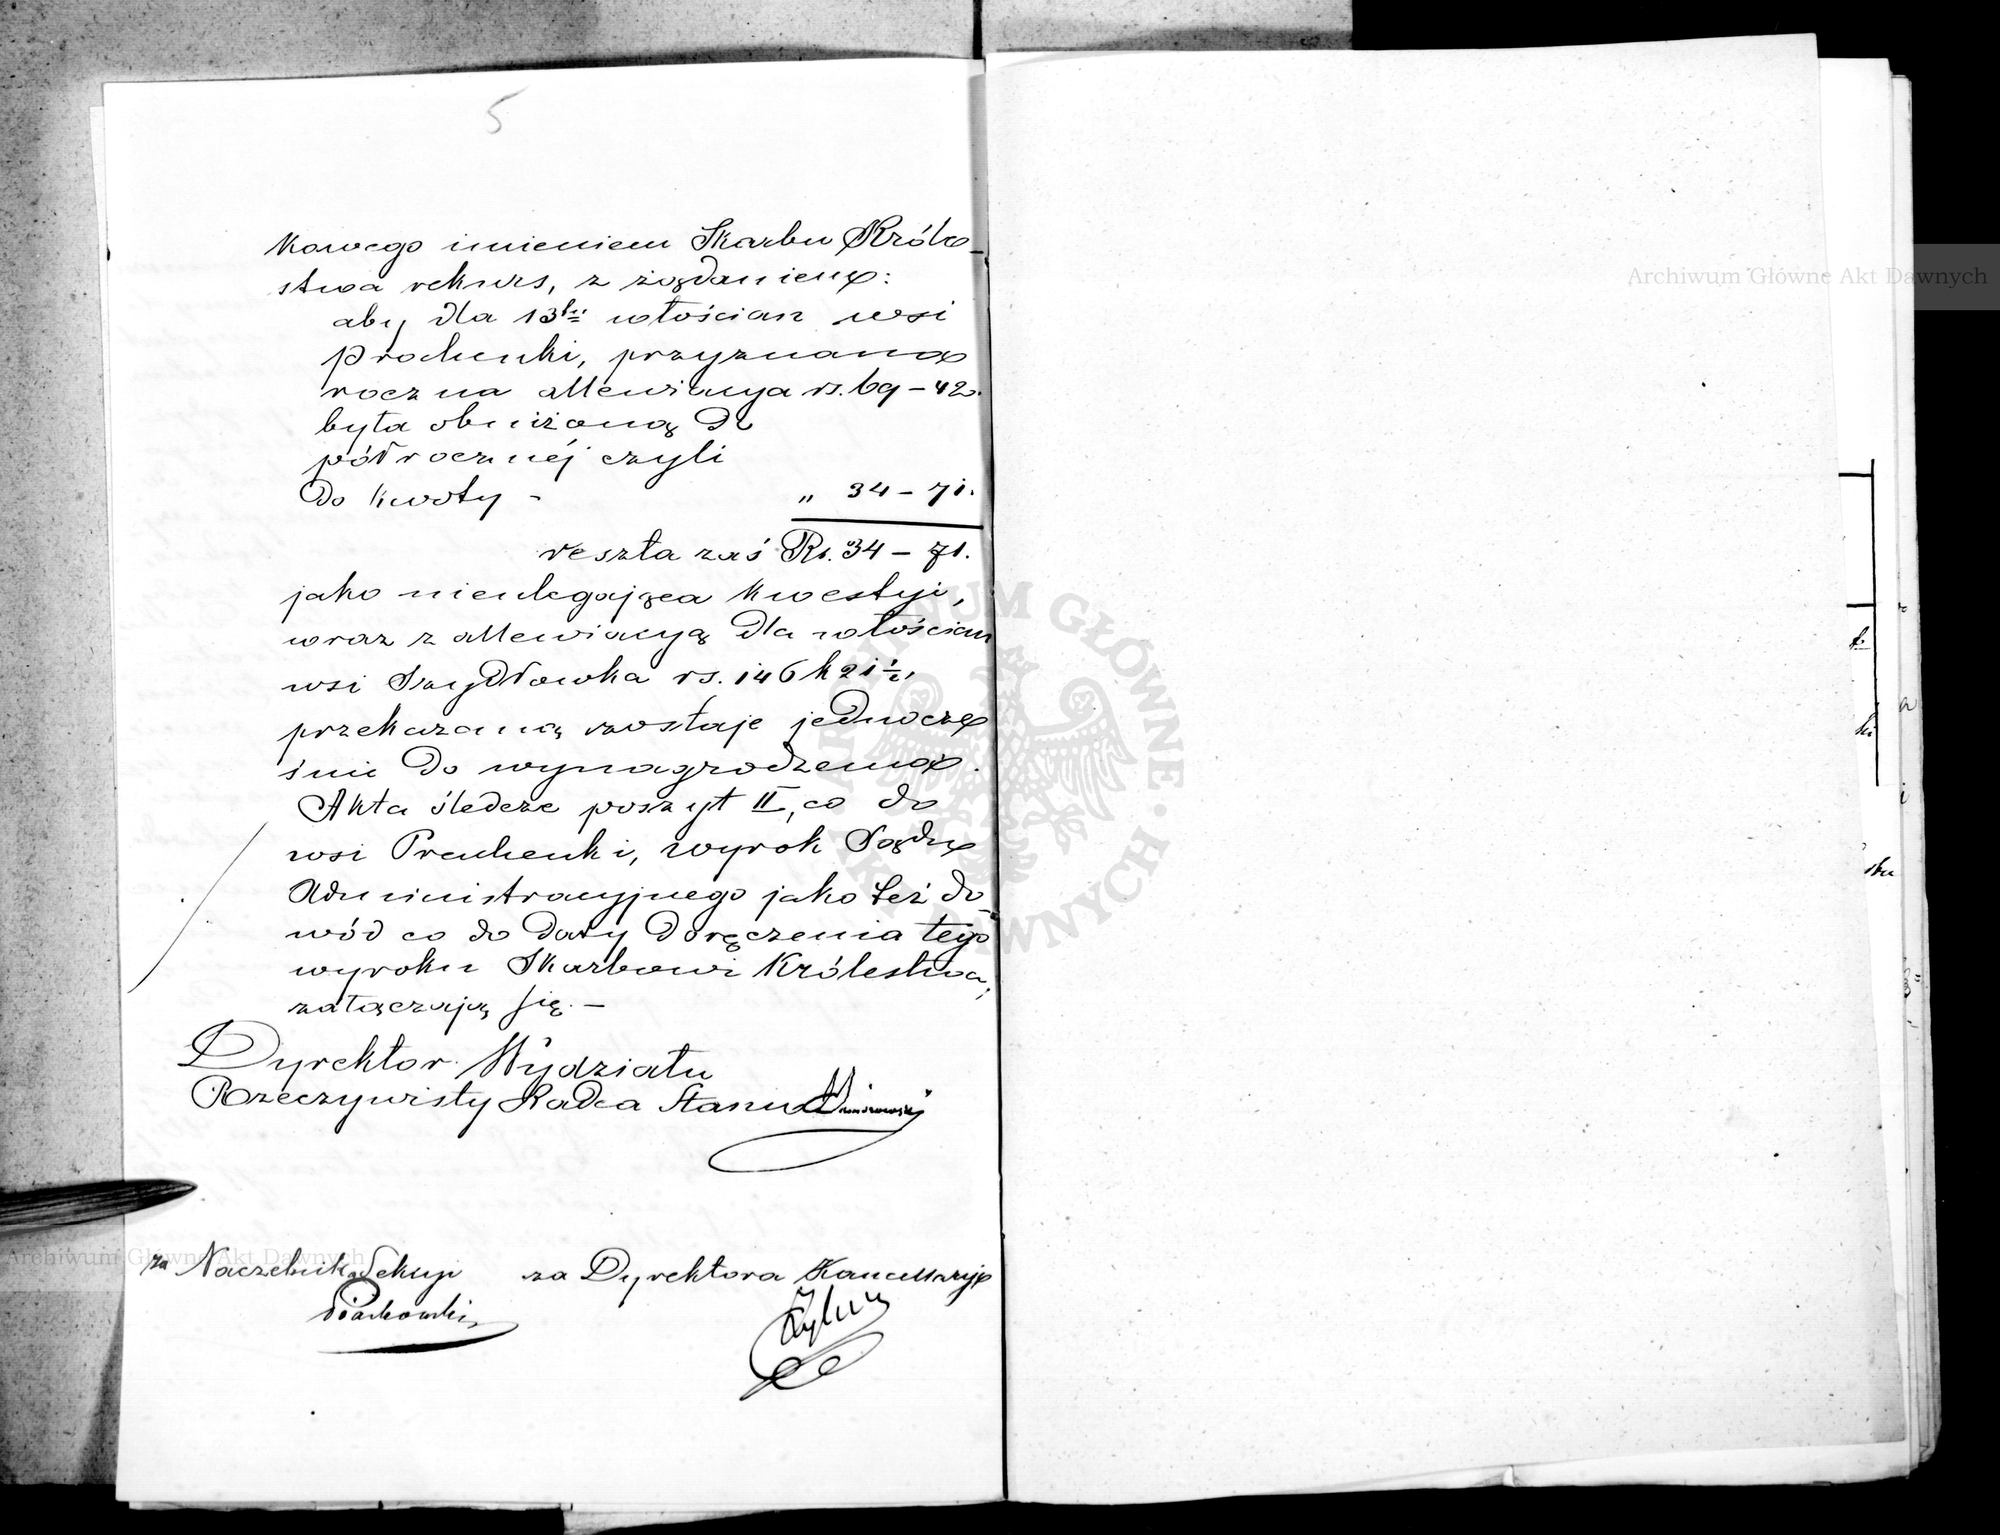 5
kowego imieniem Skarbu Króle-
stwa rekurs, z żądaniem:
aby dla 13tu włościan wsi
Prochenki, przyznana
roczna allewiacya rs. 69 – 42.
była obniżoną do
półrocznéj czyli
do kwoty - „ 34 – 71.
reszta zaś Rs. 34 – 71.
jako nieulegająca kwestyi,
wraz z allewiacyą dla włościan
wsi Szydłowka rs. 146 k 21 ½,
przekazaną zostaje jednocze
śnie do wynagrodzenia.
Akta śledcze poszyt II, co do
wsi Prochenki, wyrok Sądu
Administracyjnego jako też do-
wód co do daty doręczenia tego
wyroku Skarbowi Królestwa,
załączają się. –
Dyrektor Wydziału
Rzeczywisty Radca Stanu
za Naczelnika Sekcyi za Dyrektora Kancellaryi
Piaskowski
Archiwum Główne Akt Dawnych
Archiwum Główne Akt Dawnych
ARCHIWUM GŁÓWNE AKT DAWNYCH